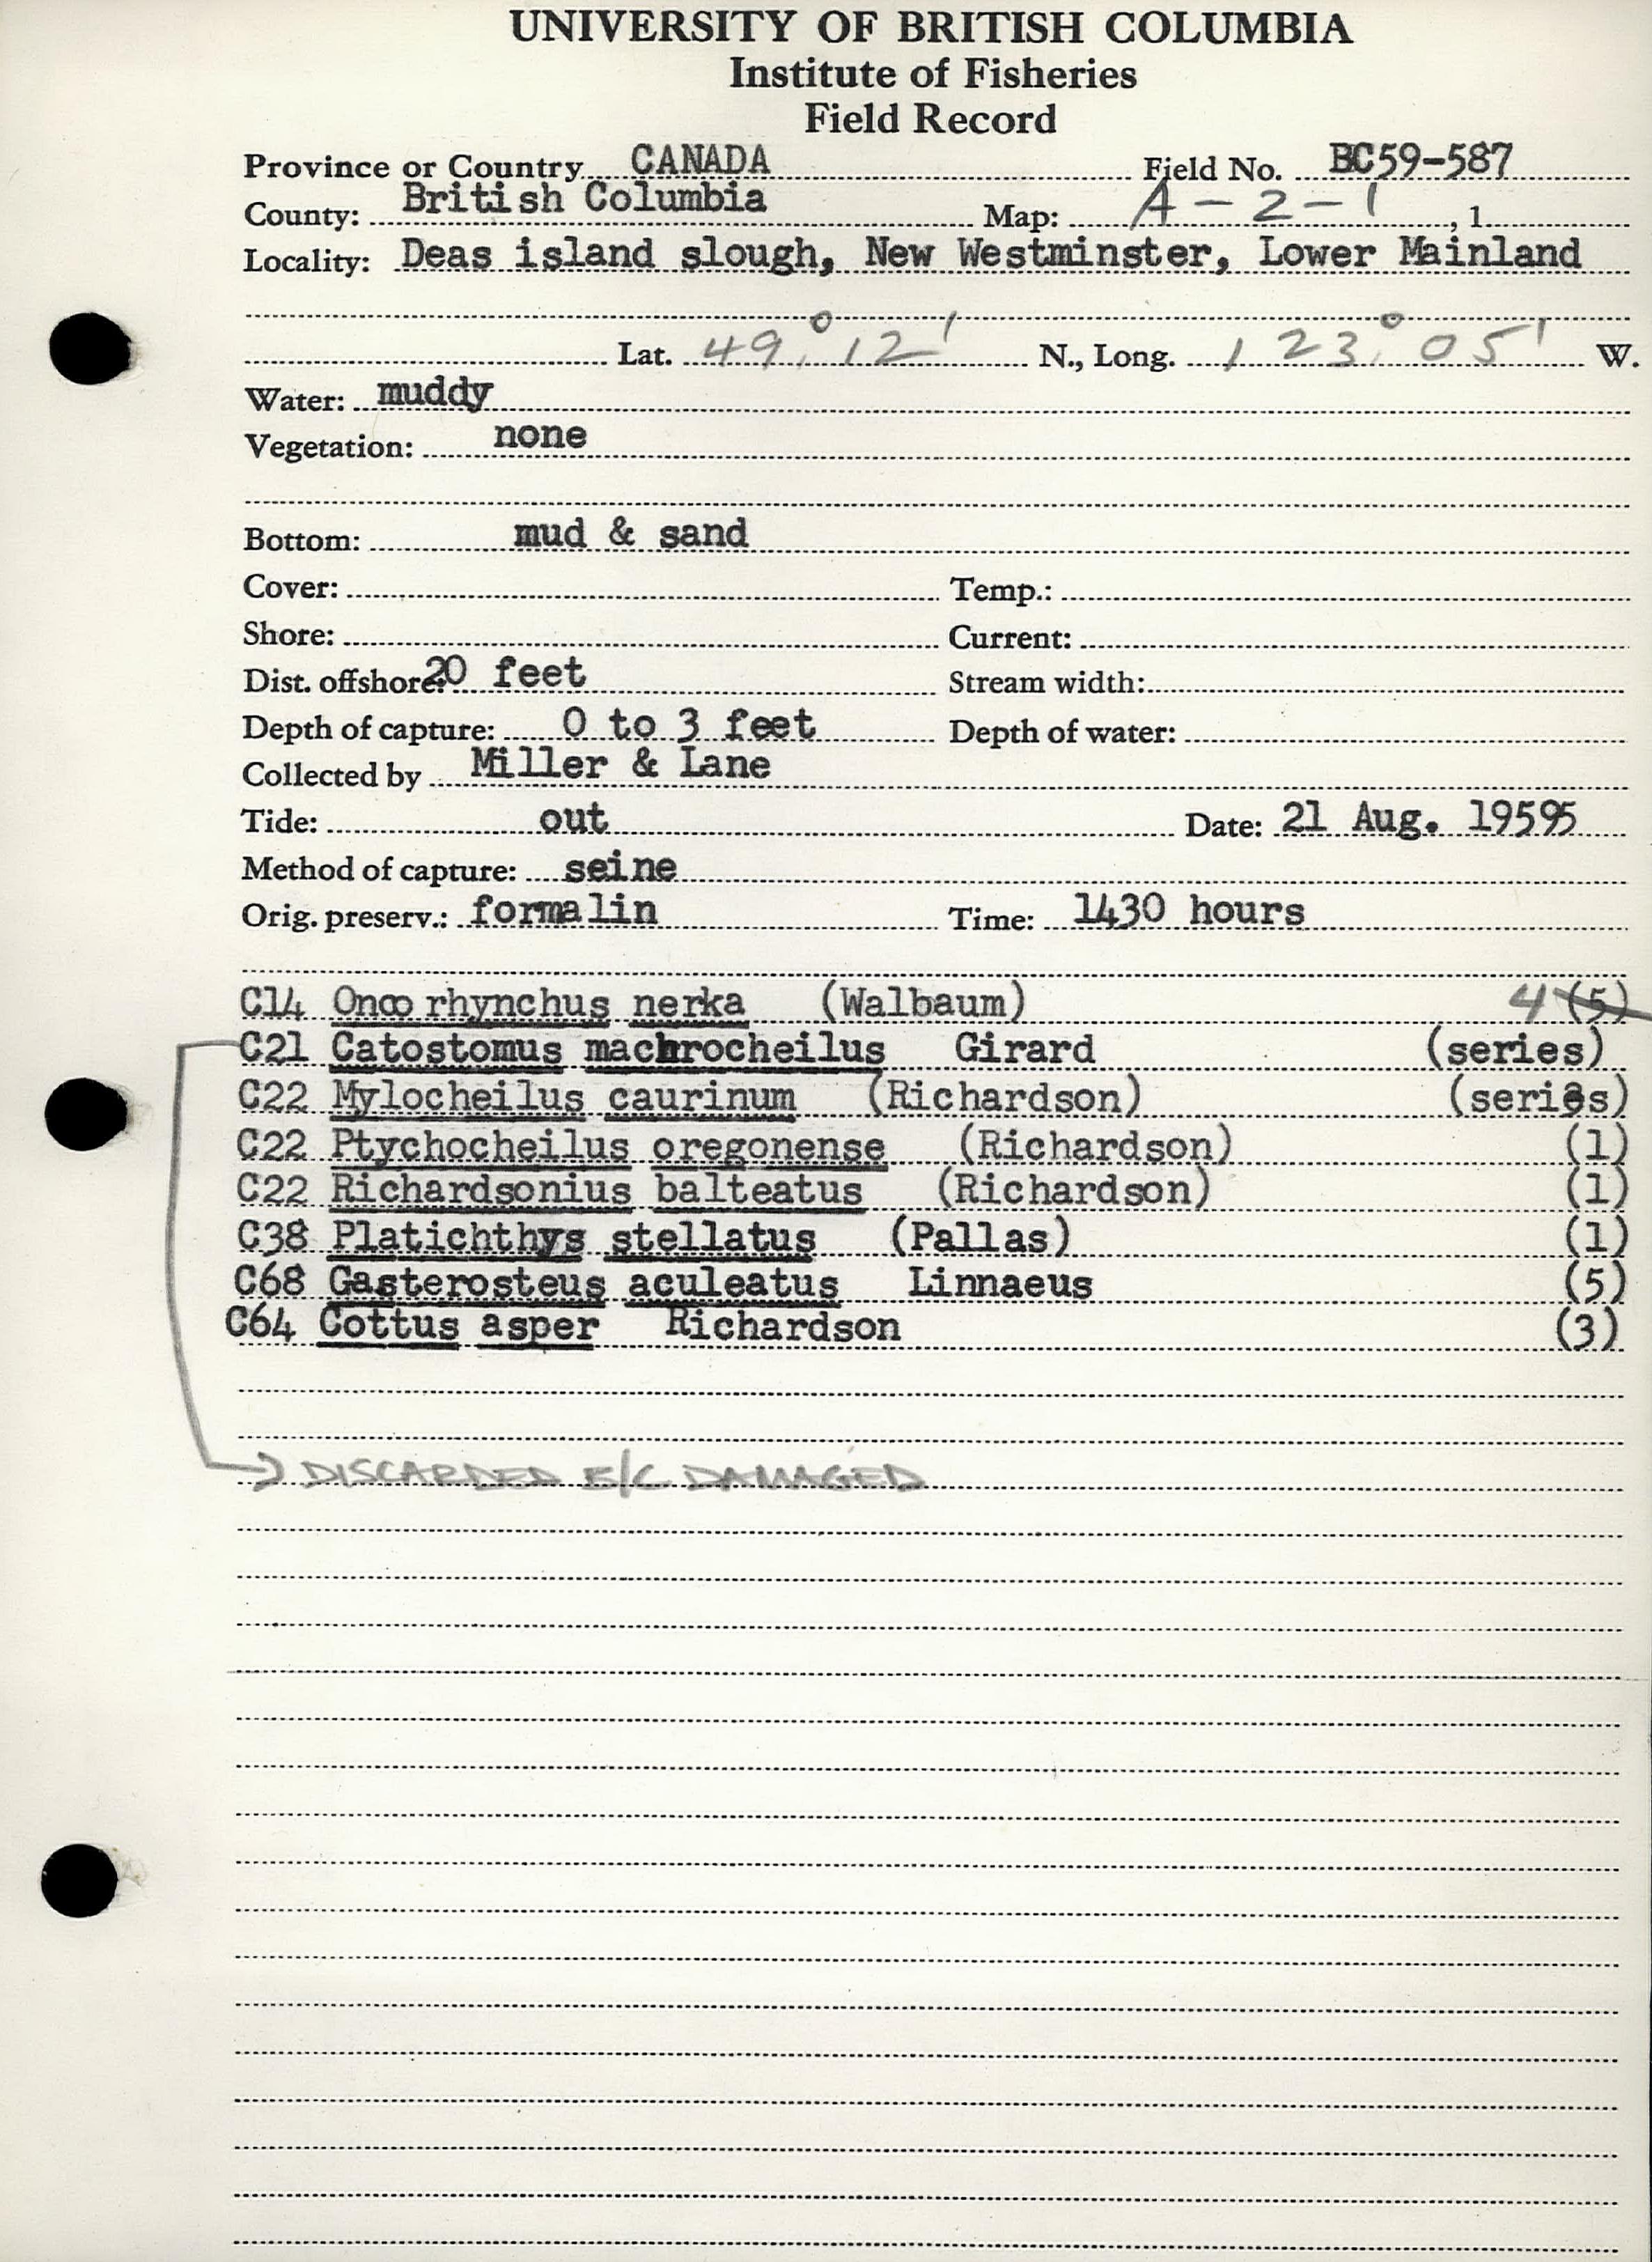 UNIVERSITY OF BRITISH COLUMBIA
Institute of Fisheries
Field Record
Province or Country CANADA Field No. BC59-587
County: British Columbia Map: A-2-1, 1
Locality: Deas island slough, New Westminster, Lower Mainland
Lat. 49° 12' N., Long. 123° 05' W.
Water: muddy
Vegetation: none
Bottom: mud & sand
Cover: Temp.:
Shore: Current:
Dist. offshore: 20 feet Stream width:
Depth of capture: 0 to 3 feet Depth of water:
Collected by Miller & Lane
Tide: out Date: 21 Aug. 19595
Method of capture: seine
Orig. preserv.: formalin Time: 1430 hours
C14 Onco rhynchus nerka (Walbaum) 4 (5)
C21 Catostomus machrocheilus Girard (series)
C22 Mylocheilus caurinum (Richardson) (series)
C22 Ptychocheilus oregonense (Richardson) (1)
C22 Richardsonius balteatus (Richardson) (1)
C38 Platichthys stellatus (Pallas) (1)
C68 Gasterosteus aculeatus Linnaeus (5)
C64 Cottus asper Richardson (3)
→ DISCARDED B/C DAMAGED